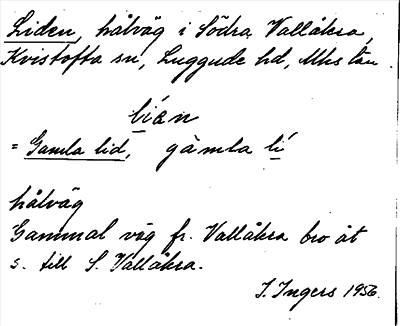 Liden, hålväg i Södra Vallåkra,
Kvistofta sn, Luggude hd, Mhs län.
líən
= Gamla lid, gàmla lí
hålväg
Gammal väg fr. Vallåkra bro åt
s. till S. Vallåkra.
I. Ingers 1956.